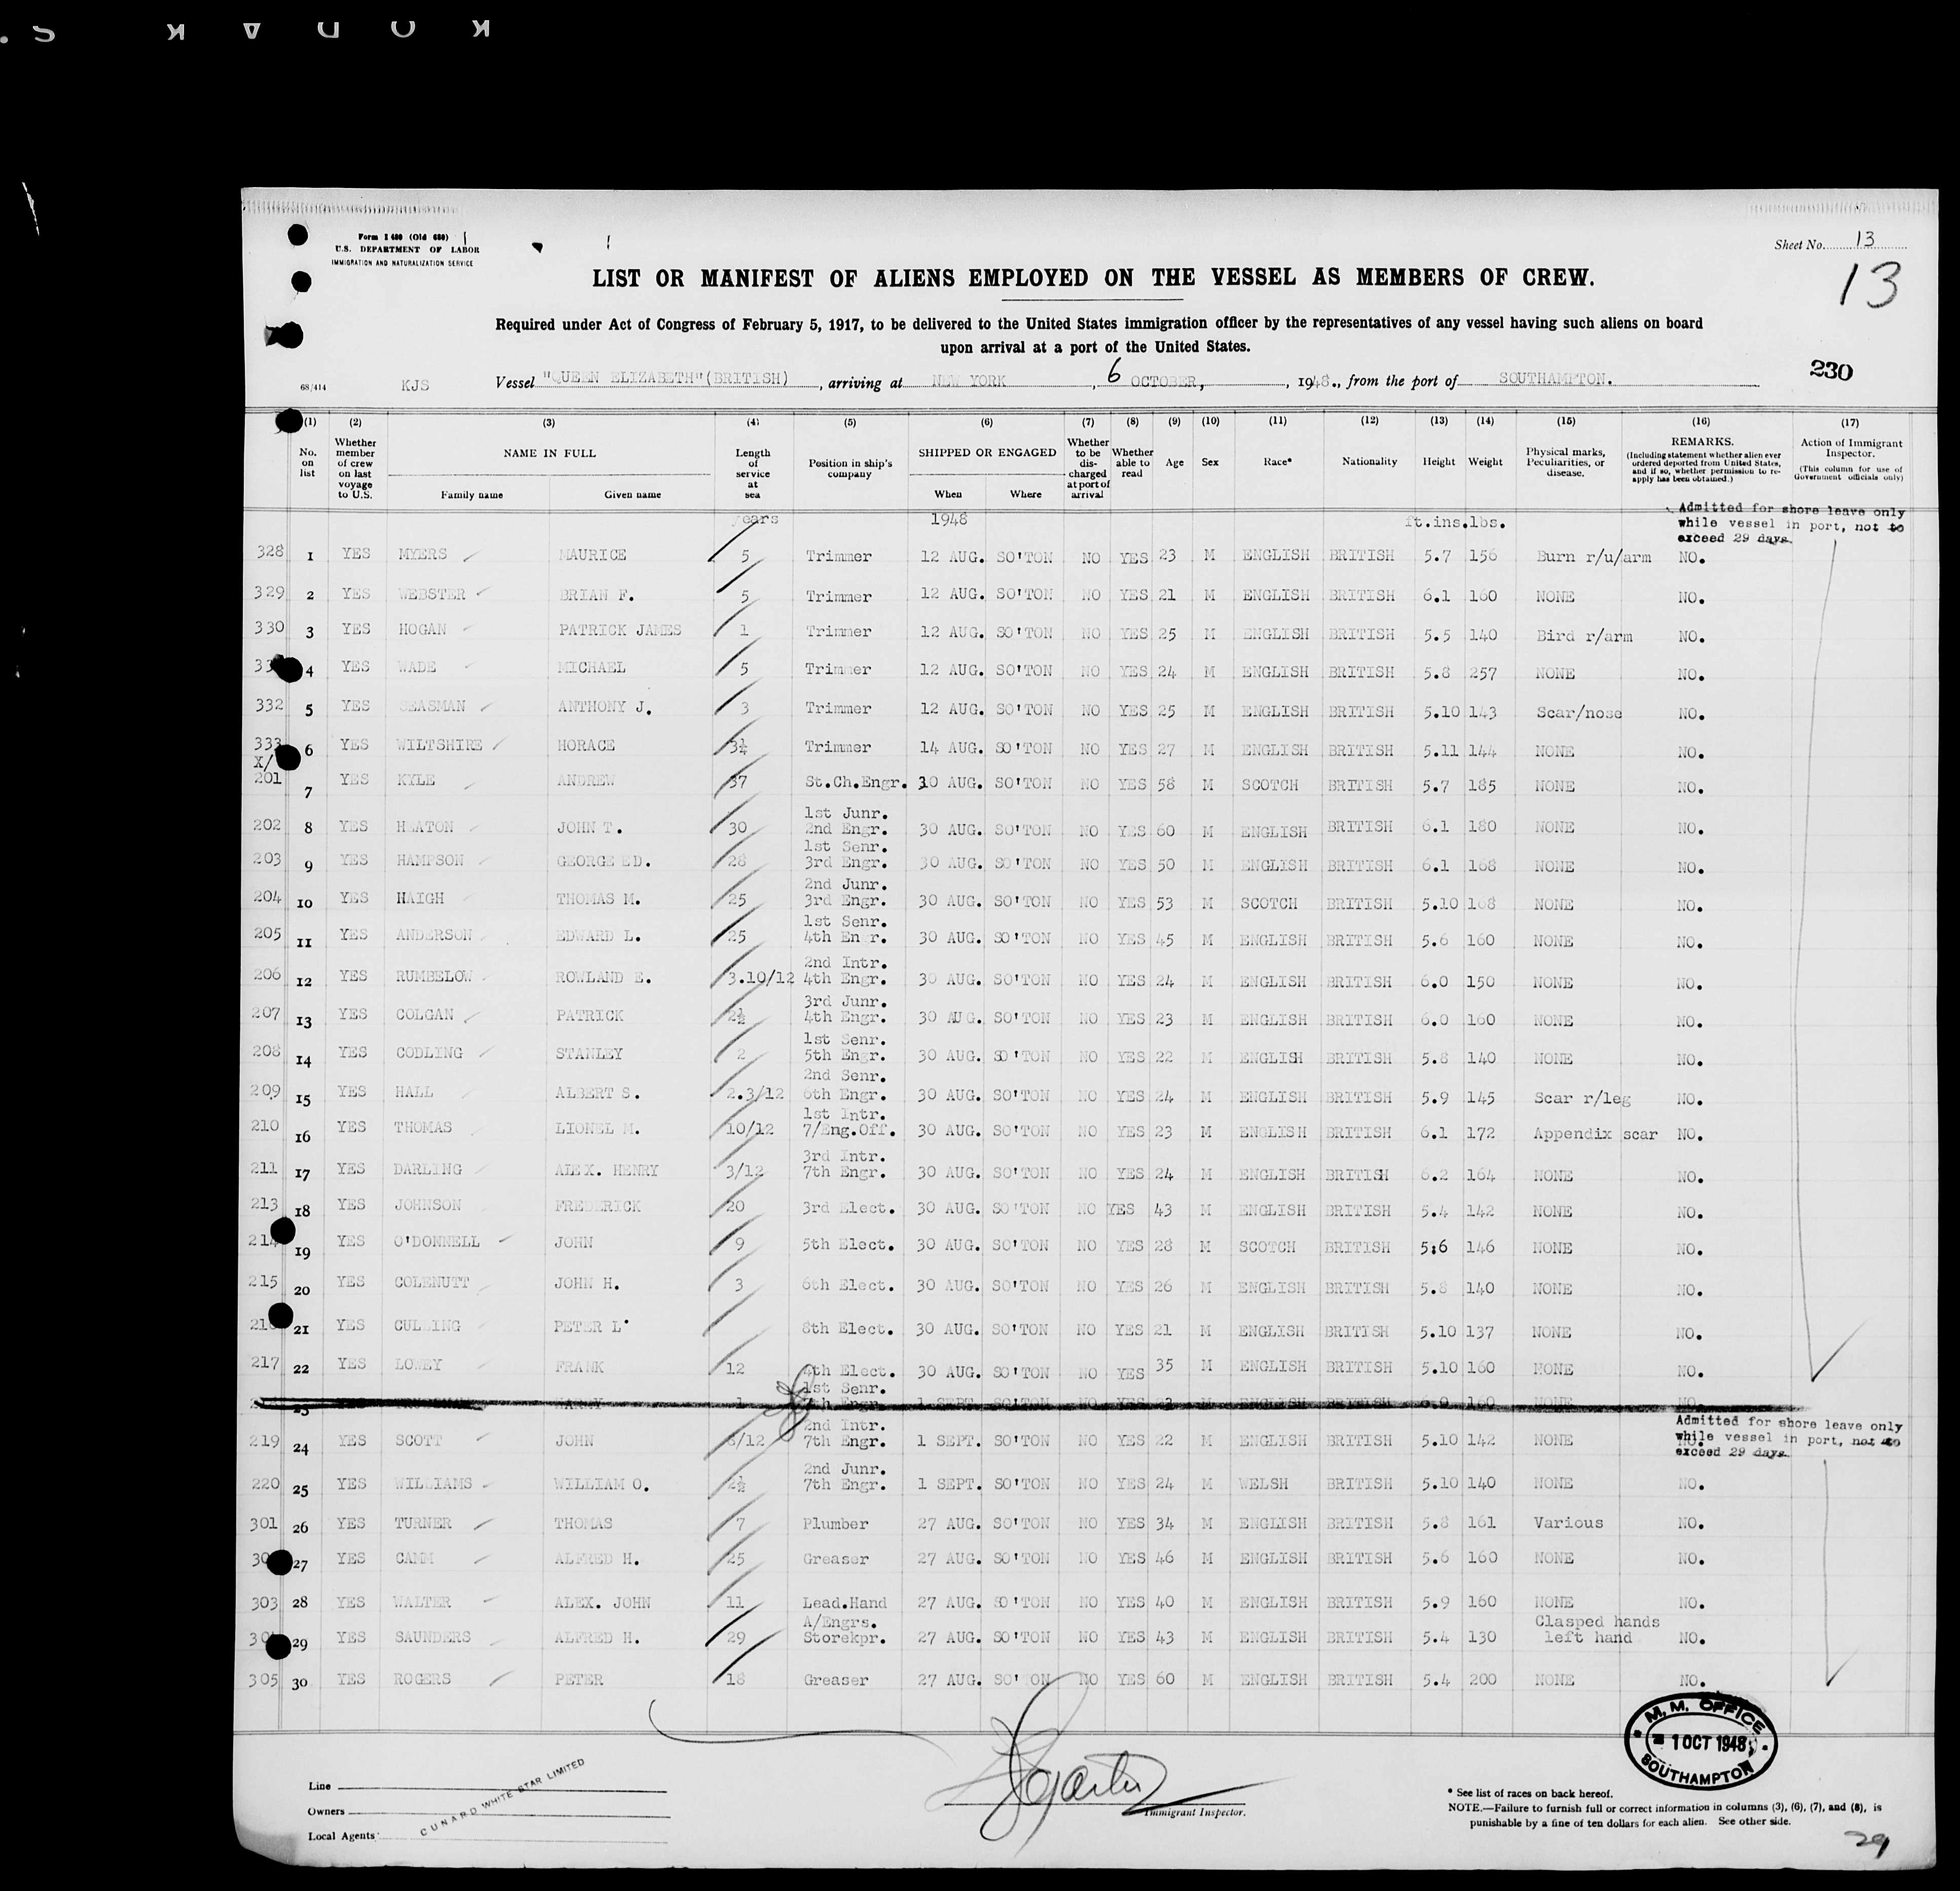 S. KODAK
Form I 480 (Old 680)
U.S. DEPARTMENT OF LABOR
IMMIGRATION AND NATURALIZATION SERVICE
Sheet No. 13
13
LIST OR MANIFEST OF ALIENS EMPLOYED ON THE VESSEL AS MEMBERS OF CREW.
Required under Act of Congress of February 5, 1917, to be delivered to the United States immigration officer by the representatives of any vessel having such aliens on board
upon arrival at a port of the United States.
230
68/414 KJS Vessel "QUEEN ELIZABETH"(BRITISH), arriving at NEW YORK, 6 OCTOBER, 1948., from the port of SOUTHAMPTON.
(1) (2) (3) (4) (5) (6) (7) (8) (9) (10) (11) (12) (13) (14) (15) (16) (17)
No. on list
Whether member of crew on last voyage to U.S.
NAME IN FULL
Family name Given name
Length of service at sea
Position in ship's company
SHIPPED OR ENGAGED
When Where
Whether to be discharged at port of arrival
Whether able to read
Age Sex Race* Nationality Height Weight
Physical marks, Peculiarities, or disease.
REMARKS.
(Including statement whether alien ever ordered deported from United States, and if so, whether permission to re-apply has been obtained.)
Action of Immigrant Inspector.
(This column for use of Government officials only)
years 1948 ft.ins.lbs.
Admitted for shore leave only
while vessel in port, not to
exceed 29 days.
328 1 YES MYERS MAURICE 5 Trimmer 12 AUG. SO'TON NO YES 23 M ENGLISH BRITISH 5.7 156 Burn r/u/arm NO.
329 2 YES WEBSTER BRIAN F. 5 Trimmer 12 AUG. SO'TON NO YES 21 M ENGLISH BRITISH 6.1 160 NONE NO.
330 3 YES HOGAN PATRICK JAMES 1 Trimmer 12 AUG. SO'TON NO YES 25 M ENGLISH BRITISH 5.5 140 Bird r/arm NO.
4 YES WADE MICHAEL 5 Trimmer 12 AUG. SO'TON NO YES 24 M ENGLISH BRITISH 5.8 257 NONE NO.
332 5 YES SEASMAN ANTHONY J. 3 Trimmer 12 AUG. SO'TON NO YES 25 M ENGLISH BRITISH 5.10 143 Scar/nose NO.
333 6 YES WILTSHIRE HORACE 3¼ Trimmer 14 AUG. SO'TON NO YES 27 M ENGLISH BRITISH 5.11 144 NONE NO.
X/
201 7 YES KYLE ANDREW 37 St.Ch.Engr. 30 AUG. SO'TON NO YES 58 M SCOTCH BRITISH 5.7 185 NONE NO.
1st Junr.
202 8 YES HEATON JOHN T. 30 2nd Engr. 30 AUG. SO'TON NO YES 60 M ENGLISH BRITISH 6.1 180 NONE NO.
1st Senr.
203 9 YES HAMPSON GEORGE ED. 28 3rd Engr. 30 AUG. SO'TON NO YES 50 M ENGLISH BRITISH 6.1 168 NONE NO.
2nd Junr.
204 10 YES HAIGH THOMAS M. 25 3rd Engr. 30 AUG. SO'TON NO YES 53 M SCOTCH BRITISH 5.10 168 NONE NO.
1st Senr.
205 11 YES ANDERSON EDWARD L. 25 4th Engr. 30 AUG. SO'TON NO YES 45 M ENGLISH BRITISH 5.6 160 NONE NO.
2nd Intr.
206 12 YES RUMBELOW ROWLAND E. 3.10/12 4th Engr. 30 AUG. SO'TON NO YES 24 M ENGLISH BRITISH 6.0 150 NONE NO.
3rd Junr.
207 13 YES COLGAN PATRICK 2½ 4th Engr. 30 AUG. SO'TON NO YES 23 M ENGLISH BRITISH 6.0 160 NONE NO.
1st Senr.
208 14 YES CODLING STANLEY 2 5th Engr. 30 AUG. SO'TON NO YES 22 M ENGLISH BRITISH 5.8 140 NONE NO.
2nd Senr.
209 15 YES HALL ALBERT S. 2.3/12 6th Engr. 30 AUG. SO'TON NO YES 24 M ENGLISH BRITISH 5.9 145 Scar r/leg NO.
1st Intr.
210 16 YES THOMAS LIONEL M. 10/12 7/Eng.Off. 30 AUG. SO'TON NO YES 23 M ENGLISH BRITISH 6.1 172 Appendix scar NO.
3rd Intr.
211 17 YES DARLING ALEX. HENRY 3/12 7th Engr. 30 AUG. SO'TON NO YES 24 M ENGLISH BRITISH 6.2 164 NONE NO.
213 18 YES JOHNSON FREDERICK 20 3rd Elect. 30 AUG. SO'TON NO YES 43 M ENGLISH BRITISH 5.4 142 NONE NO.
214 19 YES O'DONNELL JOHN 9 5th Elect. 30 AUG. SO'TON NO YES 28 M SCOTCH BRITISH 5:6 146 NONE NO.
215 20 YES COLENUTT JOHN H. 3 6th Elect. 30 AUG. SO'TON NO YES 26 M ENGLISH BRITISH 5.8 140 NONE NO.
21 YES CULLING PETER L' 8th Elect. 30 AUG. SO'TON NO YES 21 M ENGLISH BRITISH 5.10 137 NONE NO.
217 22 YES LOWEY FRANK 12 4th Elect. 30 AUG. SO'TON NO YES 35 M ENGLISH BRITISH 5.10 160 NONE NO.
1st Senr.
23 YES HARRY 1 Engr. 1 SEPT. SO'TON NO YES 23 M ENGLISH BRITISH 6.0 160 NONE NO.
Admitted for shore leave only
while vessel in port, not to
exceed 29 days.
2nd Intr.
219 24 YES SCOTT JOHN 8/12 7th Engr. 1 SEPT. SO'TON NO YES 22 M ENGLISH BRITISH 5.10 142 NONE NO.
2nd Junr.
220 25 YES WILLIAMS WILLIAM O. 2½ 7th Engr. 1 SEPT. SO'TON NO YES 24 M WELSH BRITISH 5.10 140 NONE NO.
301 26 YES TURNER THOMAS 7 Plumber 27 AUG. SO'TON NO YES 34 M ENGLISH BRITISH 5.8 161 Various NO.
27 YES CAMM ALFRED H. 25 Greaser 27 AUG. SO'TON NO YES 46 M ENGLISH BRITISH 5.6 160 NONE NO.
303 28 YES WALTER ALEX. JOHN 11 Lead.Hand 27 AUG. SO'TON NO YES 40 M ENGLISH BRITISH 5.9 160 NONE NO.
A/Engrs. Clasped hands
29 YES SAUNDERS ALFRED H. 29 Storekpr. 27 AUG. SO'TON NO YES 43 M ENGLISH BRITISH 5.4 130 left hand NO.
305 30 YES ROGERS PETER 18 Greaser 27 AUG. SO'TON NO YES 60 M ENGLISH BRITISH 5.4 200 NONE NO.
M.M. OFFICE
1 OCT 1948
SOUTHAMPTON
Line
Owners
Local Agents
CUNARD WHITE STAR LIMITED
Immigrant Inspector.
* See list of races on back hereof.
NOTE.—Failure to furnish full or correct information in columns (3), (6), (7), and (8), is
punishable by a fine of ten dollars for each alien. See other side.
29